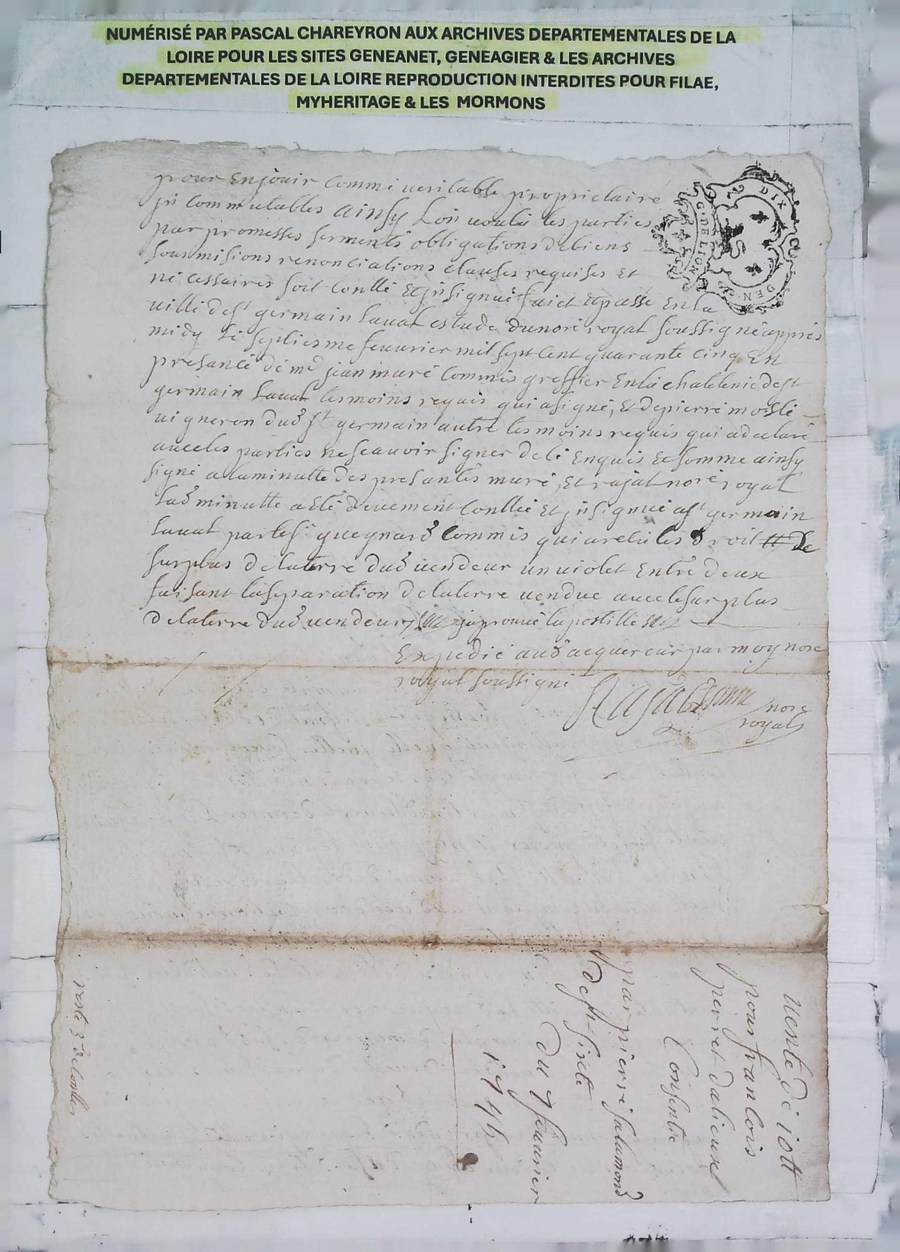 NUMÉRISÉ PAR PASCAL CHAREYRON AUX ARCHIVES DEPARTEMENTALES DE LA
LOIRE POUR LES SITES GENEANET, GENEAGIER & LES ARCHIVES
DEPARTEMENTALES DE LA LOIRE REPRODUCTION INTERDITES POUR FILAE,
MYHERITAGE & LES MORMONS
pour En jouir Commе veritable proprietaire
jri Commutables ainsy Lon voulu les parties
par promesses serments obligations de biens
soumisions renonciations clauses requises Et
necessaires soit Conllé Et jnsignué faict Et passé En la
ville de st germain Laual estude du noré royal soussigné apprés
midy Le septiesme feuurier mil sept cent quarante cinq En
presance de me jean muré Commis greffier En la chatelenie de st
germain Laual tesmoins requis qui a signé, Et de pierre
uigneron dud st germain autre tesmoins requis qui a declaré
auec les parties ne scauoir signer de ce Enquis Et sommé ainsy
signé a la minutte des presantes muré, Et rajat noré royal
Lad minutte a eté deuement Conllée Et jnsignué a st germain
Laual par le sr guegnard Commis qui a recu les Droit De
surplus de la terre dud uendeur un uiolet Entre deux
faisant la separation de la terre uendue auec le surplus
de la terre dud uendeur japrouue la postille
Expedié aud acquereur par moy noré
royal soussigné
Rajat noré
royal
DIX
DEN
G. DE LION
uente de 10tt
pour francois
perret dalieux
Consentie
par pierre salamond
de st sixte
Du 7 feuurier
1745